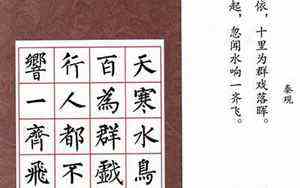 秦观
依，十里为群戏落晖。
起，忽闻水响一齐飞。
天寒水鳥
百為群戲
行人都不
響一齊飛